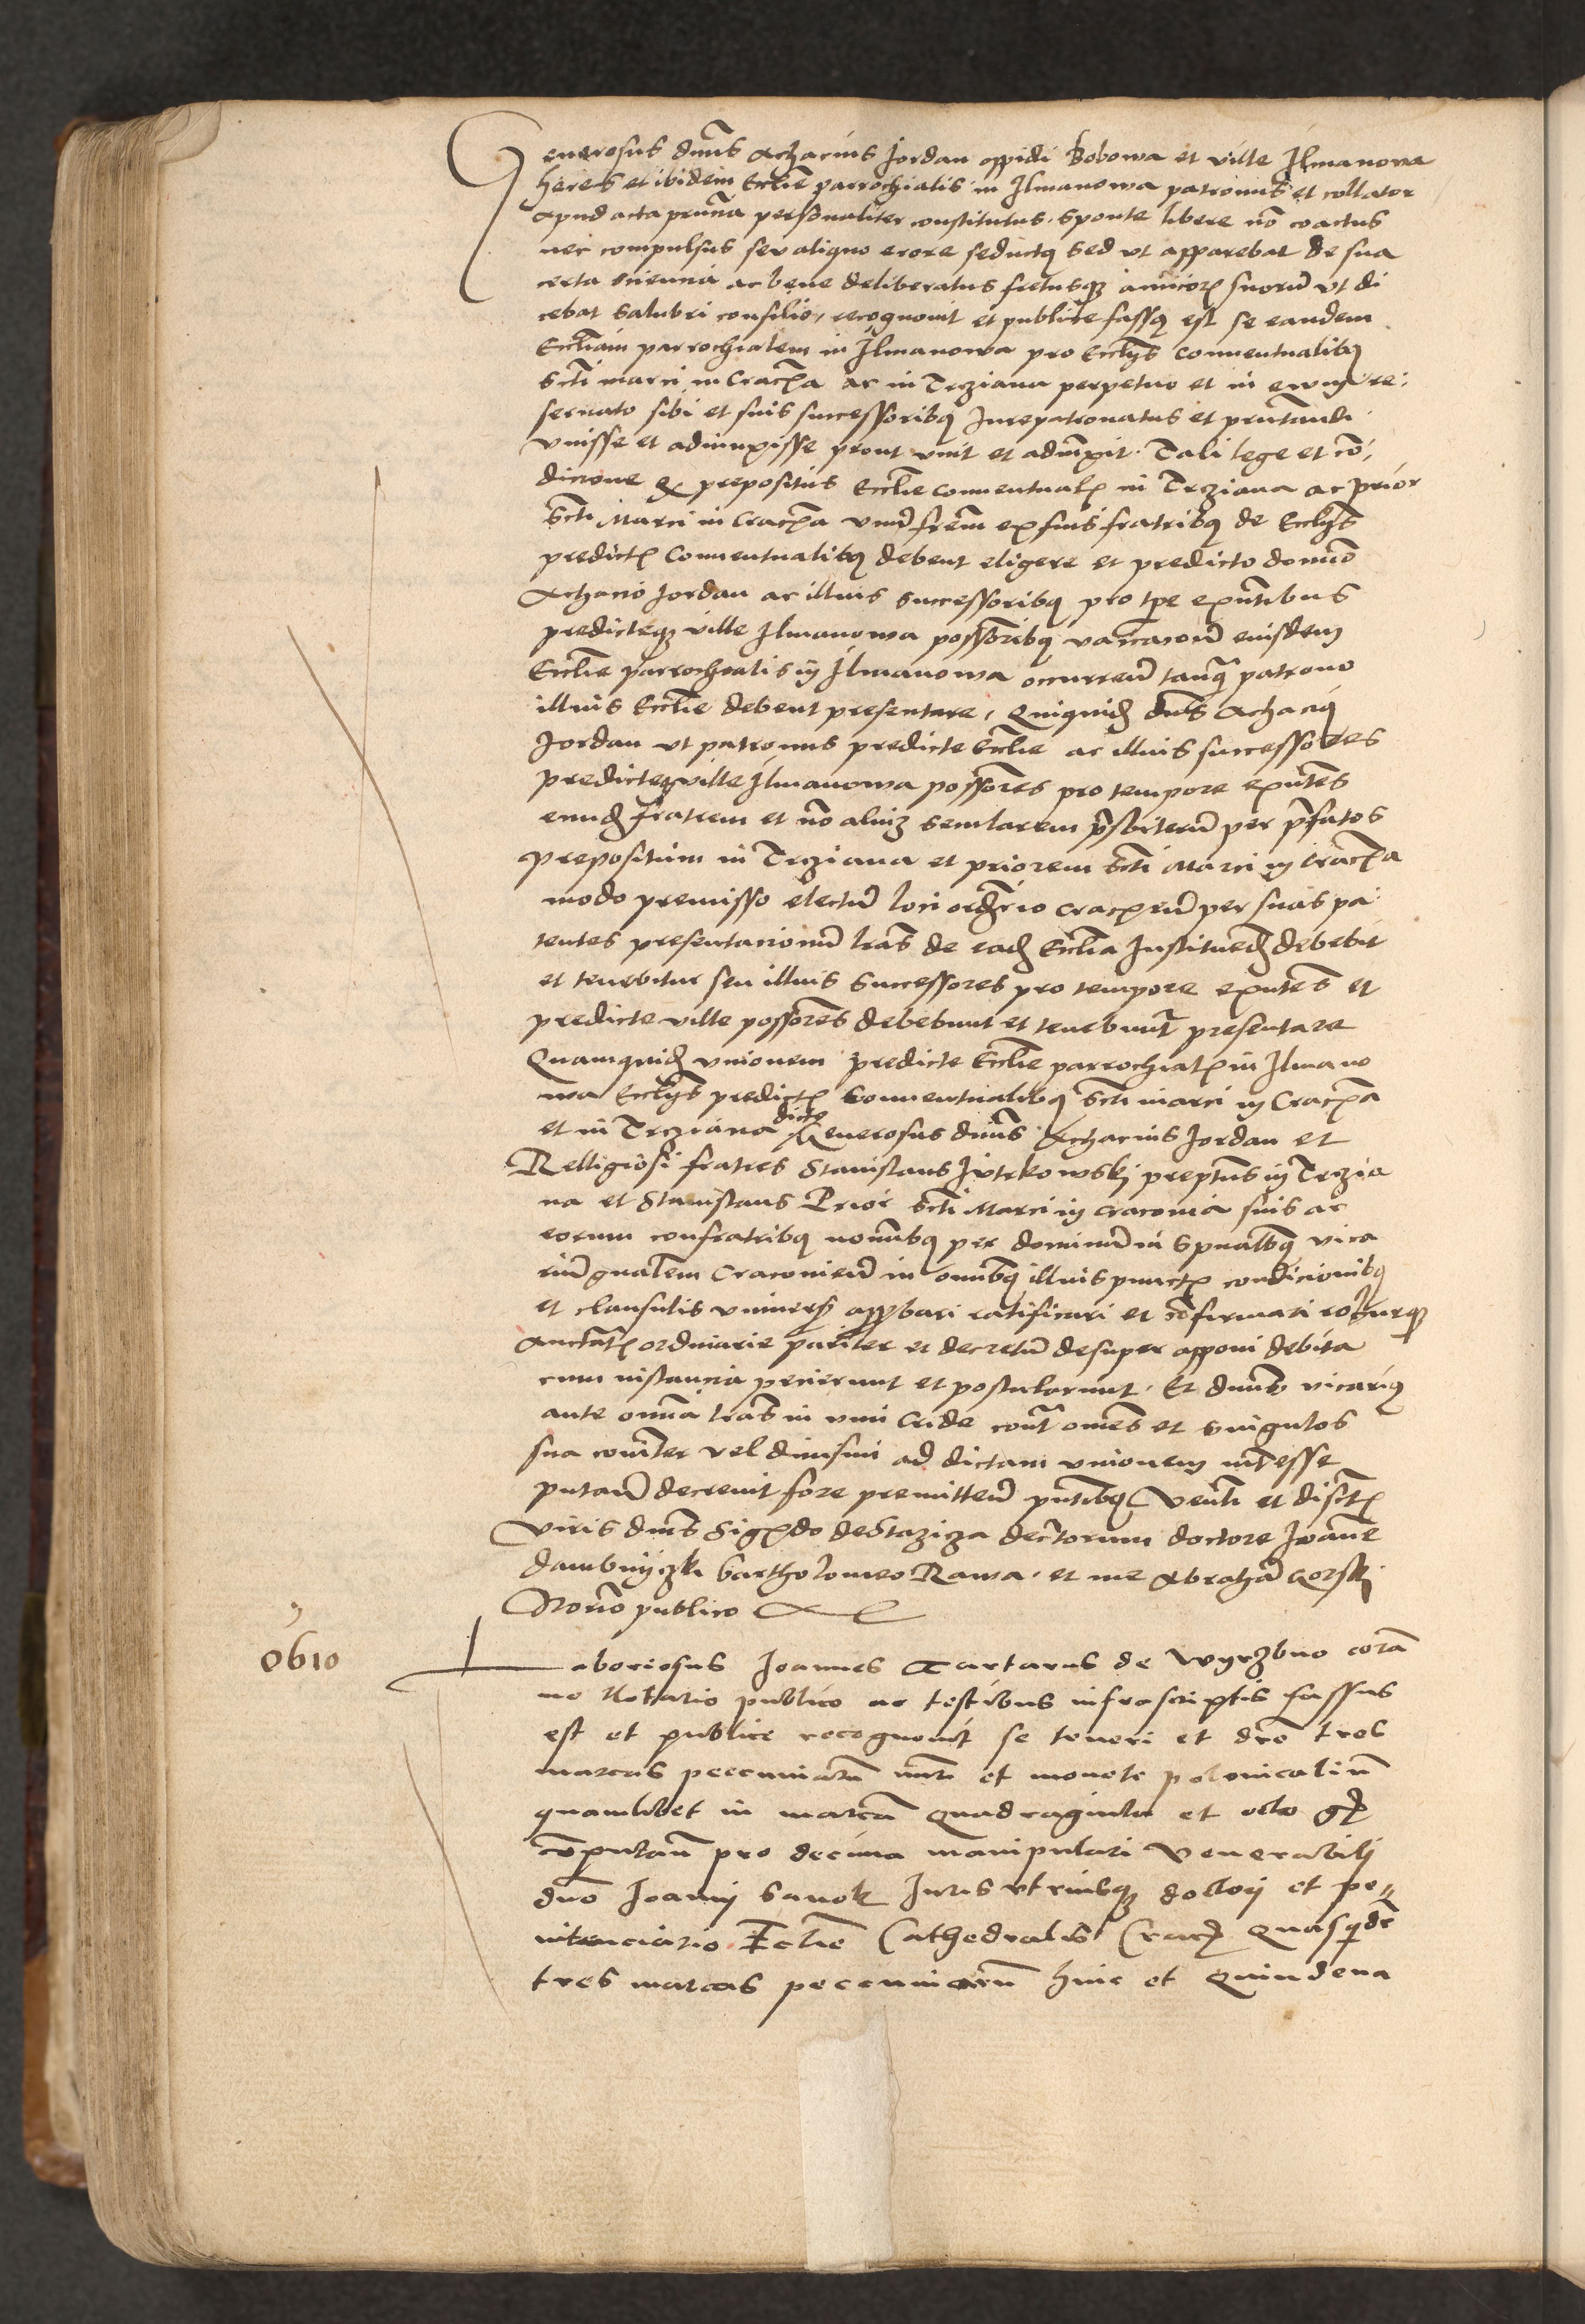 Generosus dnus Achacius Jordan oppidi Bobowa et ville Ilmanowa
heres et ibidem Ecclie parrochialis in Ilmanowa patronus et collator
apud acta prntia personaliter constitutus. sponte libere no coactus
nec compulsus seu aliquo erore seductus sed ut apparebat de sua
certa sciencia ac bene deliberatus fretusque amicor suoru ut di
cebat salubri consilio, recognovit et publice fassus est se eandem
Eccliam parrochialem in Ilmanowa pro Ecclys conventualibus
scti marci in Crac a ac in Trziana perpetuo et in evum re:
servato sibi et suis successoribus Jurepatronatus et prntandi
unisse et adiunxisse prout unit et adiungit. Tali lege et co,
dicione q prepositus Ecclie conventual in Trziana ac prior
scti Marci in Crac a unu frem ex suis fratribus de Ecclys
predict Conventualibus debent eligere et predicto domino
Achacio Jordan ac illius successoribus pro tpe exntibus
predicteque ville Ilmanowa possoribus vacacionu eiusdem
Ecclie parrochialis in Ilmanowa occurren tanqua patrono
illius Ecclie debent presentare, Quiquid dnus Achacius
Jordan ut patronus predicte Ecclie ac illius successores
predicteque ville Ilmanowa possores pro tempore exntes
eund fratrem et no aliu secularem prsbiteru per prfatos
prepositum in Trziana et priorem scti Marci in Crac a
modo premisso electu loci ordrio Crac per suas pa
tentes presentacionu lras de ead Ecclia Instituend debebit
et tenebitur seu illius successores pro tempore exntes et
predicte ville possores debebunt et tenebunt presentare
Quamquid unionem predicte Ecclie parrochial in Ilmano
wa Ecclys predict Conventualibus scti marci in Crac a
et in Trziana dicto Generosus dnus Achacius Jordan et
Relligiosi fratres Stanislaus prepts in Trzia
na et Stanislaus Prior scti Marci in Cracovia suis ac
eorum confratribus noibus per dominu in spualibus vica
riu gnalem Cracovien in omnibus illius punct condicionibus
et clausulis univers approbari ratificari et confirmari roburque
auctat ordinarie pariter et decretu desuper apponi debita
cum instancia pecierunt et postularunt. Et dnus vicarius
ante omnia lras in vim Cride contra omes et singulos
sua coniter vel divisim ad dictam unionem intesse
putan decrevit fore premitten pntibus Venli et discret
viris dnis Sigdo de Stazicza dectorum doctore Joane
Bartholomeo Rawa. et me Abraha Gorski
Notario publico
obio
Laboriosus Joannes Tartarus de Wyrzbno cora
me Notario publico ac testibus infrascriptis fassus
est et publice recognovit se teneri et dro tres
marcas pecuniaru nuri et monete polonicaliu
quamlibet in marca quadraginta et octo g
computan pro decima manipulari Venerabili
dno Joanni Sanok Juris utriusque doctori et pe„
nitenciario Eclie Cathedralis Crac quasqde
tres marcas pecuniaru hinc et quindena